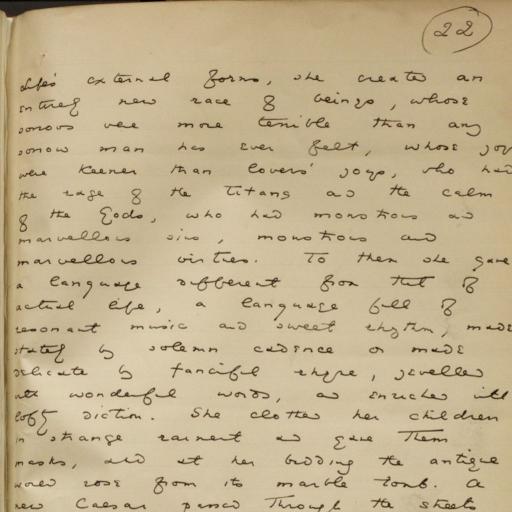 22
life's external forms, she created an
entirely new race of beings, whose
sorrows were more terrible than any
sorrow man has ever felt, whose joys
were keener than lovers' joys, who had
the rage of the Titans and the calm
of the Gods, who had monstrous and
marvellous sins, monstrous and
marvellous virtues. To them she gave
a language different from that of
actual life, a language full of
resonant music and sweet rhythm, made
stately by solemn cadence or made
delicate by fanciful rhyme, jewelled
with wonderful words, and enriched with
lofty diction. She clothed her children
in strange raiment and gave them
masks, and at her bidding the antique
world rose from its marble tomb. A
new Caesar passed through the streets